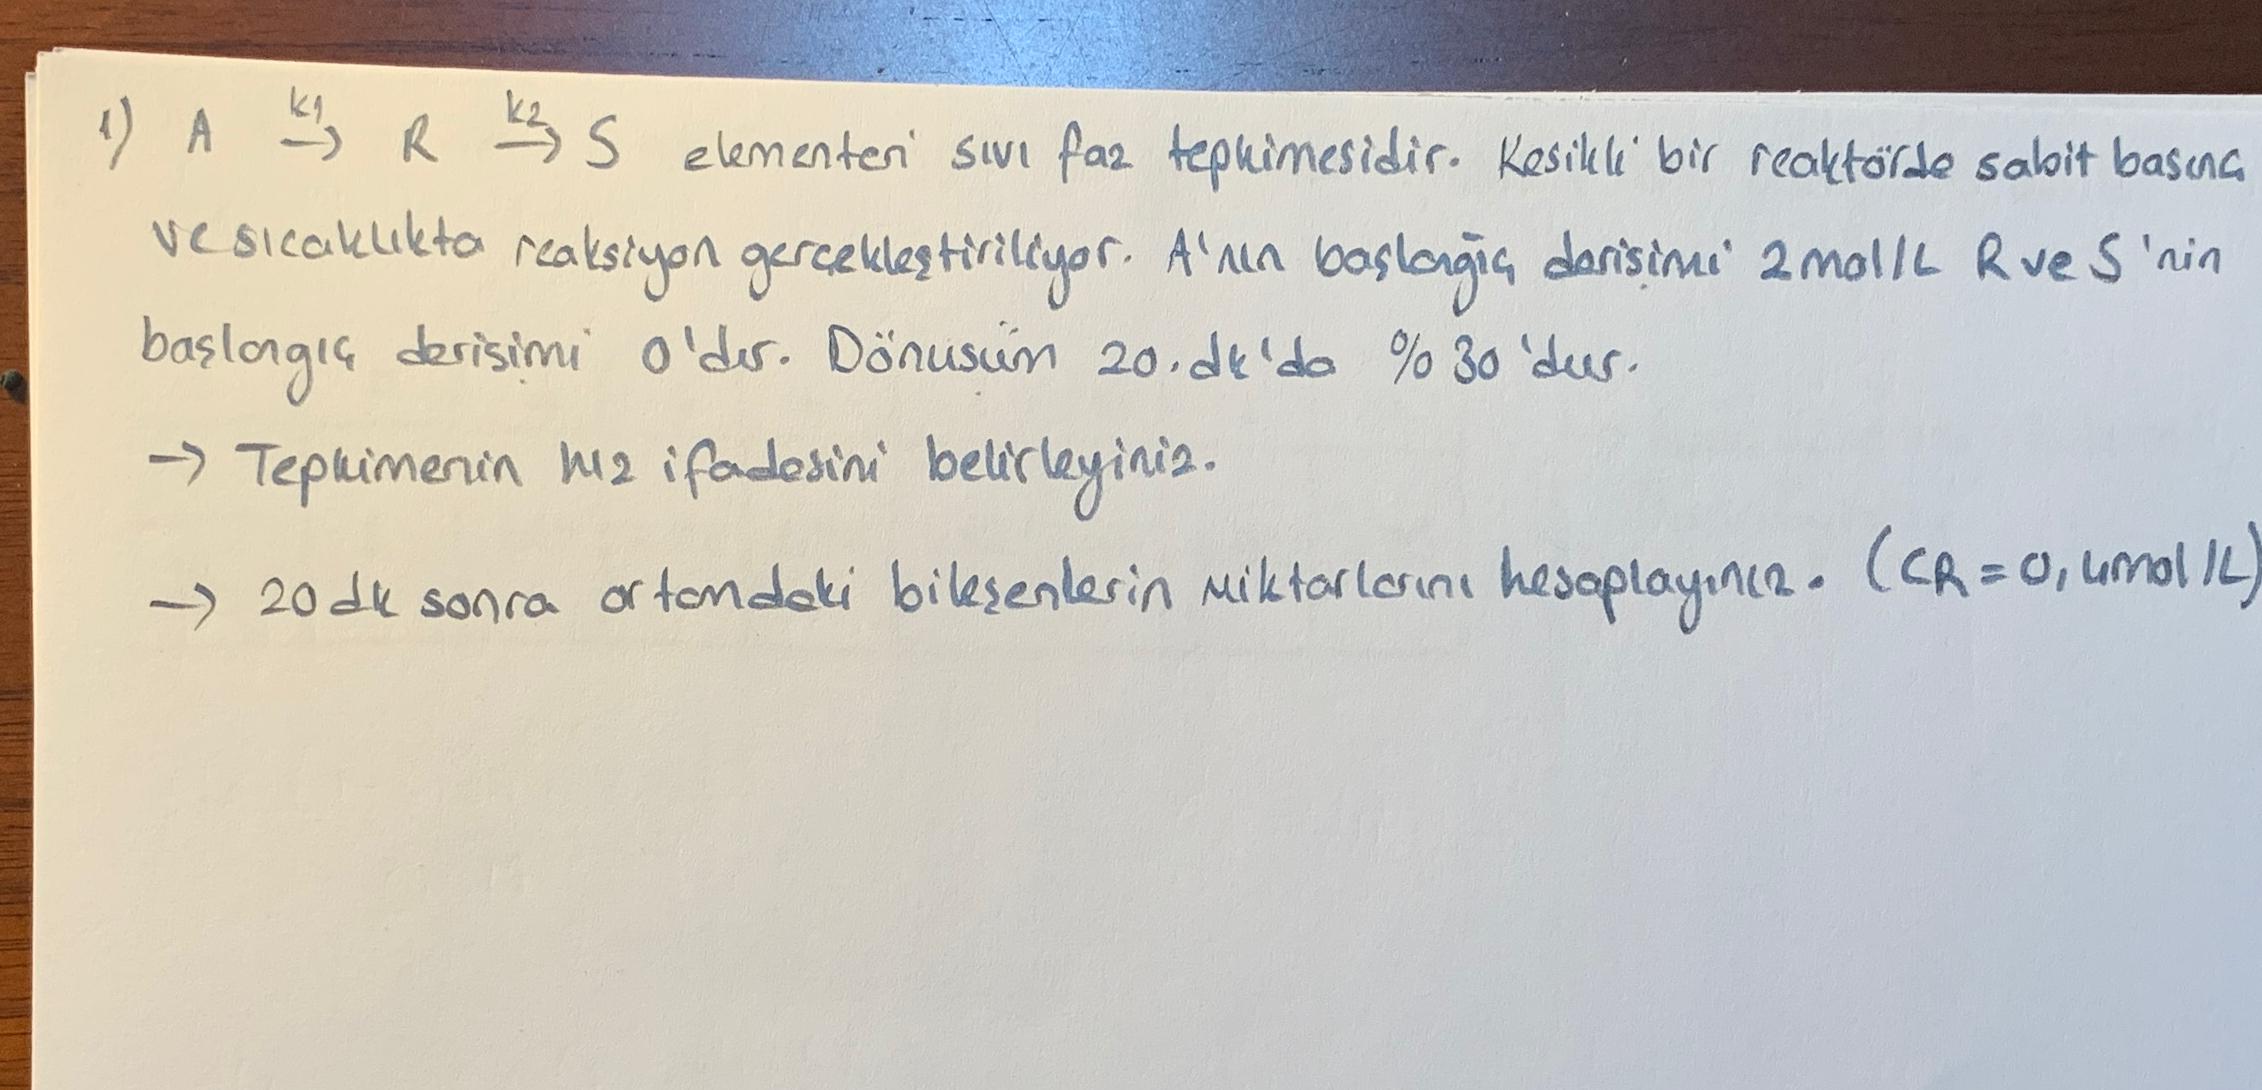 1) A k1→ R k2→ S elementeri sıvı faz tepkimesidir. Kesikli bir reaktörde sabit basınç
ve sıcaklıkta reaksiyon gerçekleştiriliyor. A'nın başlangıç derişimi 2 mol/L R ve S'nin
başlangıç derişimi 0'dır. Dönüsüm 20.dk'da %30'dur.
→ Tepkimenin hız ifadesini belirleyiniz.
→ 20 dk sonra ortamdaki bileşenlerin miktarlarını hesaplayınız. (CR = 0,4mol/L)